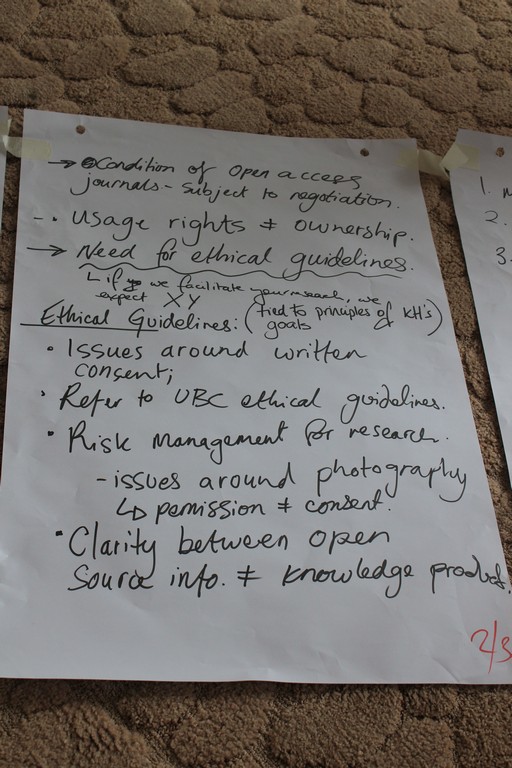 → Condition of open access
journals - Subject to negotiation.
- • Usage rights & ownership.
→ Need for ethical guidelines.
↳ if we facilitate your research, we
expect XY
Ethical Guidelines: (tied to principles of KH's
goals)
• Issues around written
consent;
• Refer to UBC ethical guidelines.
• Risk Management for research.
- issues around photography
↳ permission & consent.
• Clarity between open
source info. & knowledge product.
2/3
1.
2.
3.